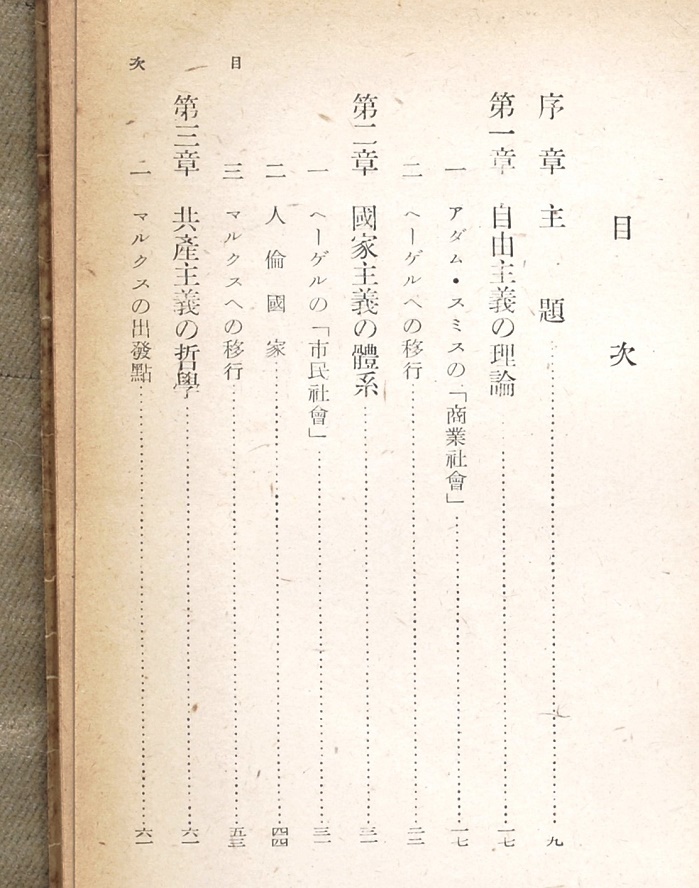 目次
序章 主題……九
第一章 自由主義の理論……一七
一 アダム・スミスの「商業社會」……一七
二 ヘーゲルへの移行……二二
第二章 國家主義の體系……三一
一 ヘーゲルの「市民社會」……三一
二 人倫國家……四四
三 マルクスへの移行……五三
第三章 共產主義の哲學……六一
一 マルクスの出發點……六一
目次